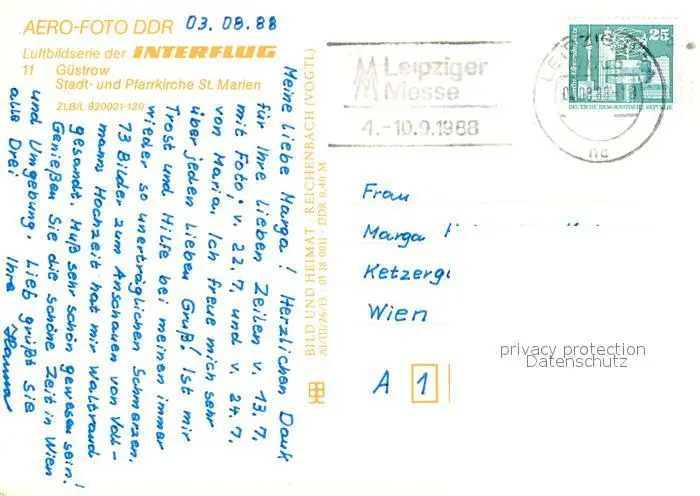 AERO-FOTO DDR
03.08.88
Luftbildserie der INTERFLUG
11 Güstrow
Stadt- und Pfarrkirche St. Marien
ZLB/L 820021-120
Meine liebe Marga! Herzlichen Dank
für Ihre lieben Zeilen v. 13.7.
mit Foto, v. 22.7. und v. 24.7.
von Maria. Ich freue mich sehr
über jeden lieben Gruß! Ist mir
Trost und Hilfe bei meinen immer
wieder so unerträglichen Schmerzen.
73 Bilder zum Anschauen von Voll-
manns Hochzeit hat mir Waltraud
gesandt. Muß sehr schön gewesen sein!
Genießen Sie die schöne Zeit in Wien
und Umgebung. Lieb grüßt Sie
alle Drei Ihre Hanna
BILD UND HEIMAT · REICHENBACH (VOGTL)
A1/III/26/13 01 18 0011 DDR 0,40 M
Leipziger
Messe
4.-10.9.1988
LEIPZIG
25
DEUTSCHE DEMOKRATISCHE REPUBLIK
Frau
Marga
Ketzerg
Wien
A 1
privacy protection
Datenschutz